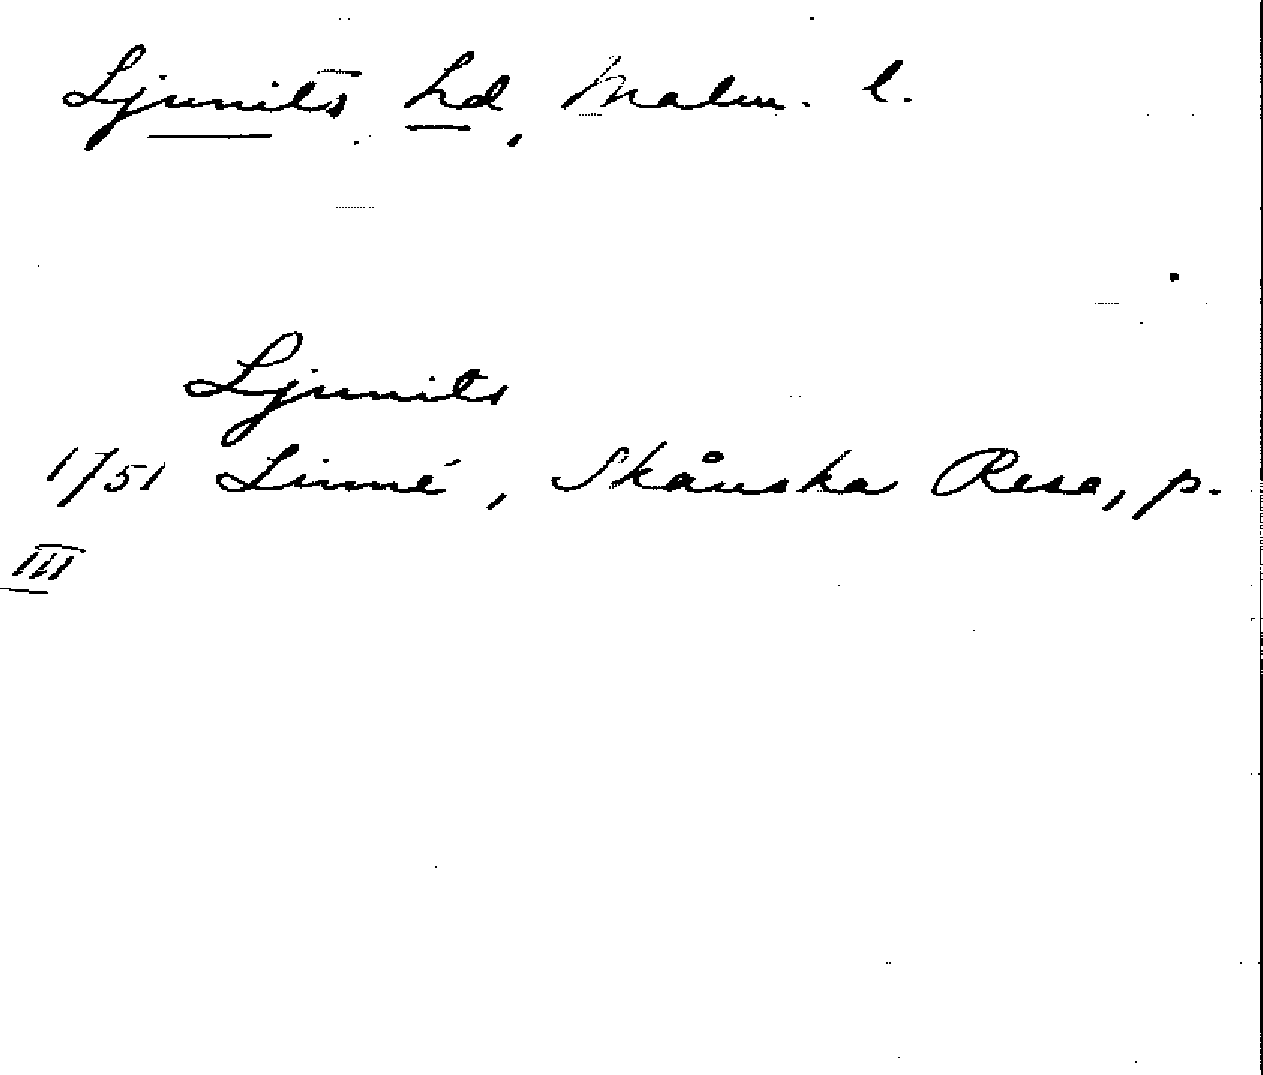 Ljunits hd, Malm. l.
Ljunits
1751 Linné, Skånska Resa, p.
III